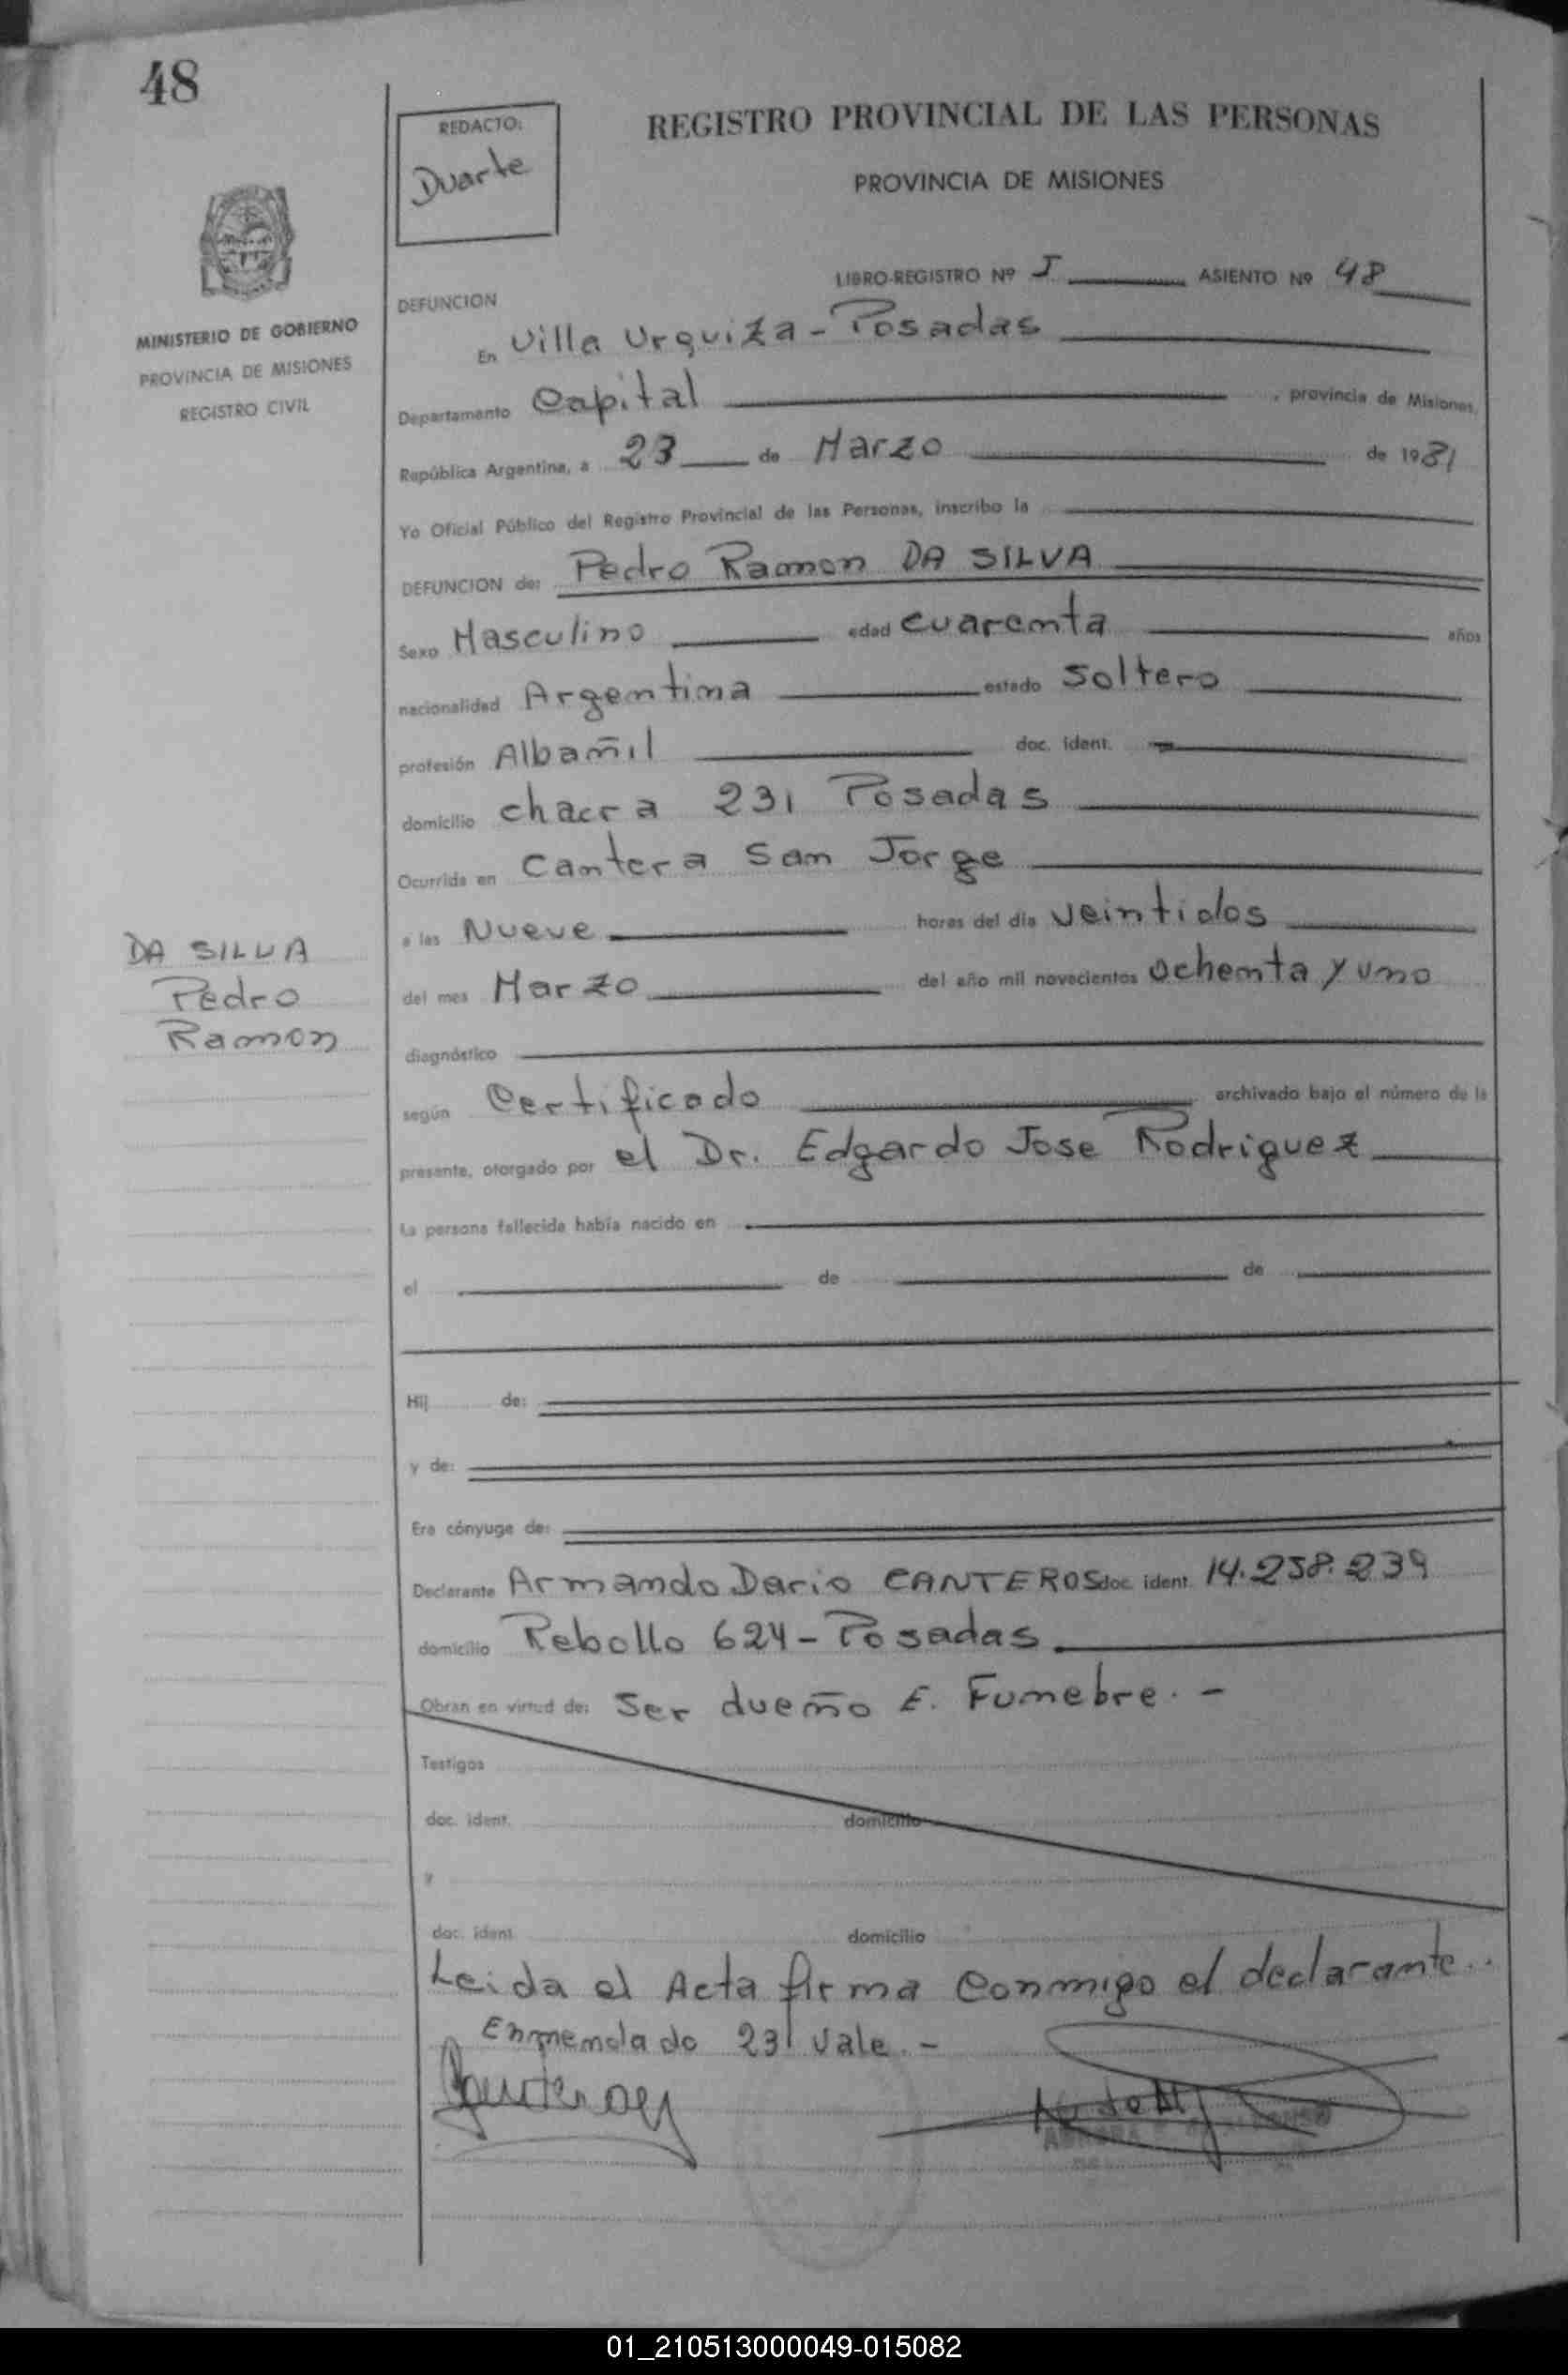 48
REDACTO:
Duarte
REGISTRO PROVINCIAL DE LAS PERSONAS
PROVINCIA DE MISIONES
MINISTERIO DE GOBIERNO
PROVINCIA DE MISIONES
REGISTRO CIVIL
LIBRO-REGISTRO Nº I ASIENTO Nº 48
DEFUNCION
En Villa Urquiza - Posadas
Departamento Capital, provincia de Misiones,
República Argentina, a 23 de Marzo de 1981
Yo Oficial Público del Registro Provincial de las Personas, inscribo la
DEFUNCION de: Pedro Ramon DA SILVA
Sexo Masculino edad cuarenta años
nacionalidad Argentina estado Soltero
profesión Albañil doc. ident. -
domicilio chacra 231 Posadas
Ocurrida en Cantera San Jorge
a las Nueve horas del día veintidos
del mes Marzo del año mil novecientos ochenta y uno
DA SILVA
Pedro
Ramon
diagnóstico
según Certificado archivado bajo el número de la
presente, otorgado por el Dr. Edgardo Jose Rodriguez
La persona fallecida había nacido en
el de de
Hij de:
y de:
Era cónyuge de:
Declarante Armando Dario CANTEROS doc. ident. 14.258.239
domicilio Rebollo 624 - Posadas
Obran en virtud de: Ser dueño E. Funebre. -
Testigos
doc. ident. domicilio
y
doc. ident. domicilio
Leida el Acta firma conmigo el declarante..
Enmendado 231 vale. -
01_210513000049-015082